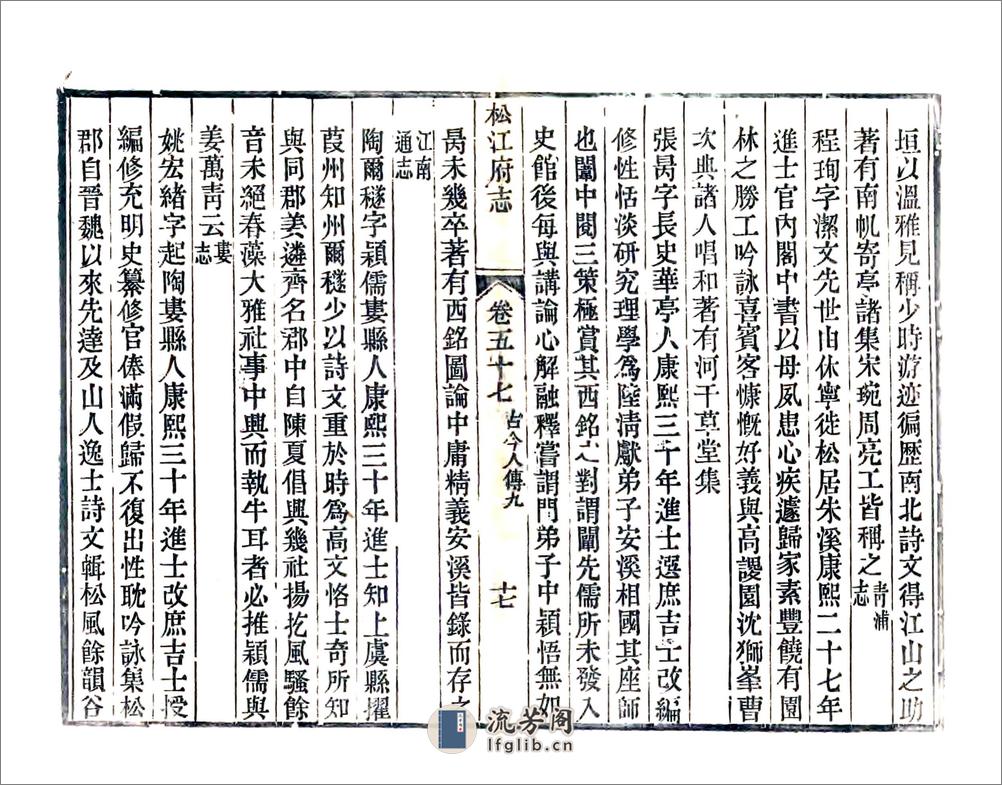 垣以溫雅見稱少時游迹徧歷南北詩文得江山之助
著有南帆寄亭諸集宋琬周亮工皆稱之青浦志
程珣字潔文先世由休寧徙松居朱溪康熙二十七年
進士官內閣中書以母夙患心疾遽歸家素豐饒有園
林之勝工吟詠喜賓客慷慨好義與高謖園沈獅峯曹
次典諸人唱和著有河干草堂集
張昺字長史華亭人康熙三十年進士選庶吉士改編
修性恬淡研究理學爲陸淸獻弟子安溪相國其座師
也闈中閱三策極賞其西銘之對謂闡先儒所未發入
史館後每與講論心解融釋嘗謂門弟子中穎悟無如
昺未幾卒著有西銘圖論中庸精義安溪皆錄而存之
江南通志
松江府志
卷五十七
古今人傳九
十七
陶爾穟字穎儒婁縣人康熙三十年進士知上虞縣擢
葭州知州爾穟少以詩文重於時爲高文恪士奇所知
與同郡姜遴齊名郡中自陳夏倡興幾社揚扢風騷餘
音未絕春藻大雅社事中興而執牛耳者必推穎儒與
姜萬靑云婁志
姚宏緒字起陶婁縣人康熙三十年進士改庶吉士授
編修充明史纂修官俸滿假歸不復出性耽吟詠集松
郡自晉魏以來先達及山人逸士詩文輯松風餘韻谷
流芳阁
lfglib.cn